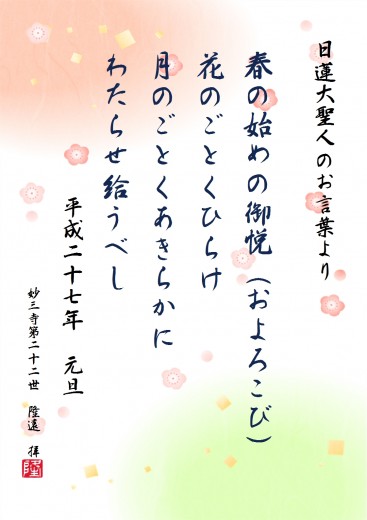 日蓮大聖人のお言葉より
春の始めの御悦（およろこび）
花のごとくひらけ
月のごとくあきらかに
わたらせ給うべし
平成二十七年　元旦
妙三寺第二十二世　陸遠　拝
陸